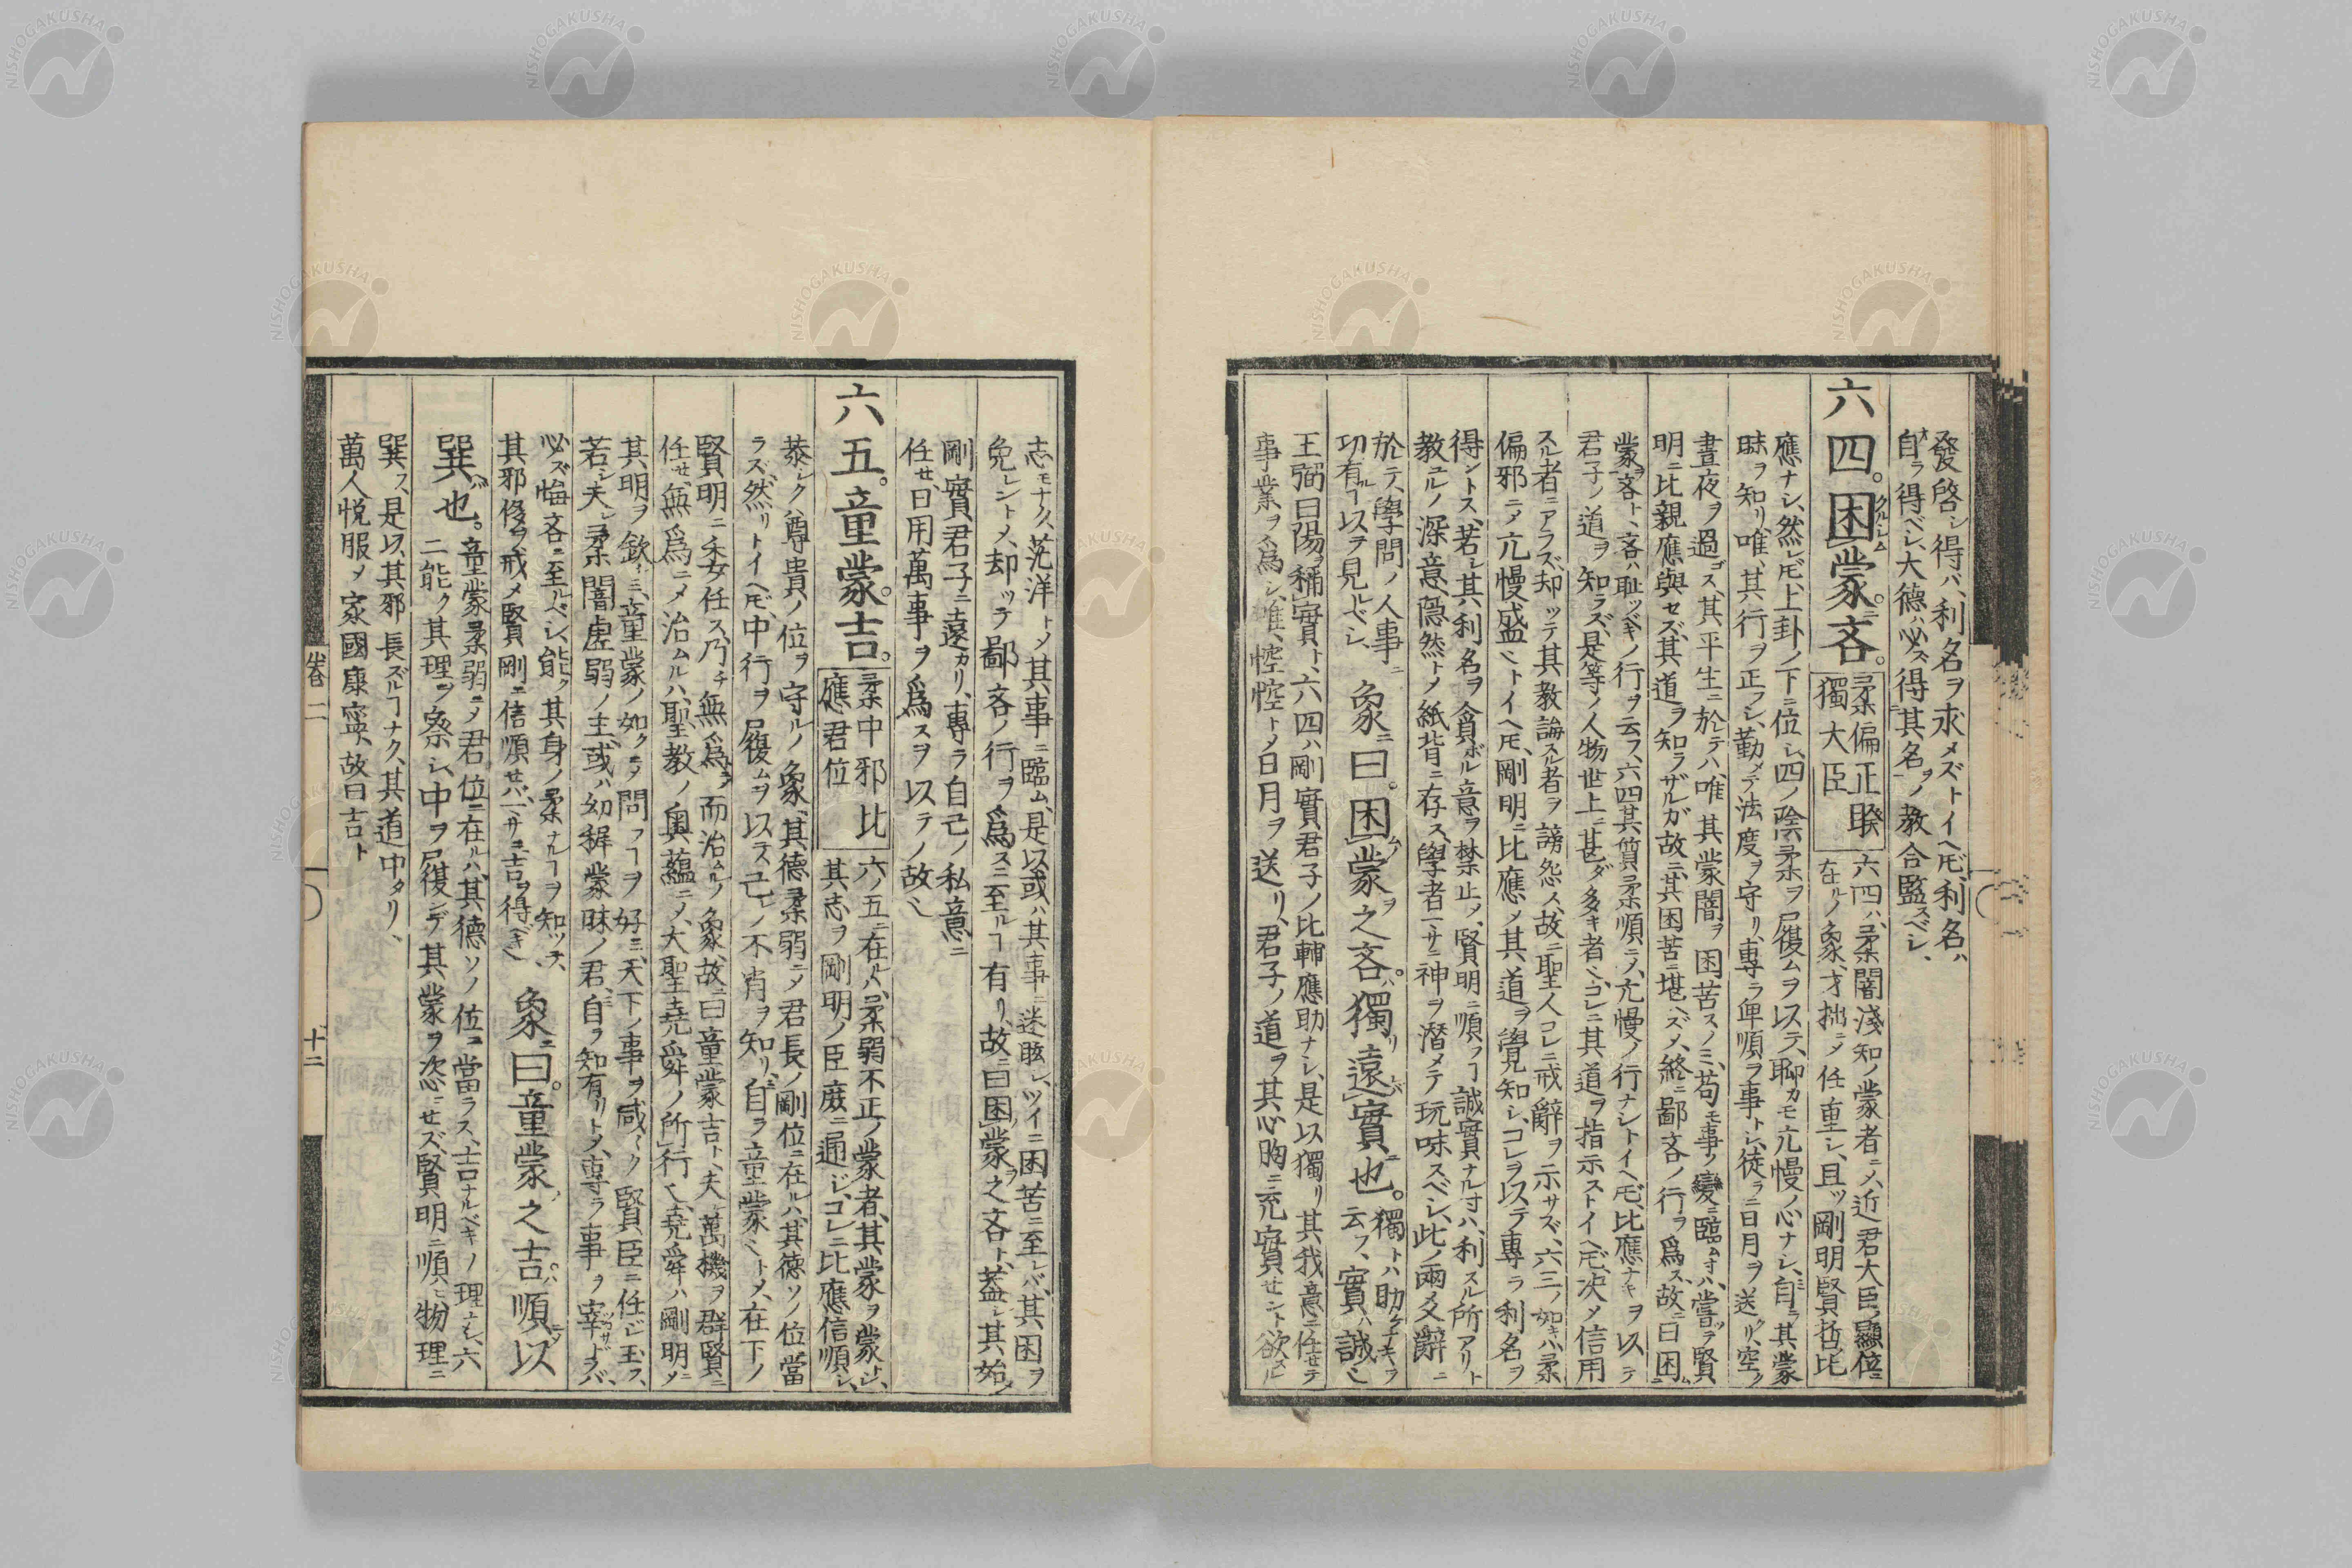 發啓シ得バ、利名ヲ求メズトイヘ𪜈、利名ハ
自ラ得ベシ、大德ハ必ズ得其名ヲノ教合監スベシ、
六四。困蒙。吝。
クルシム
柔偏正睽
獨大臣
六四ハ、柔闇淺知ノ蒙者ニ〆、近君大臣ノ顯位ニ
在ルノ象、才拙ニ〆任重シ、且ツ剛明賢哲ノ比
應ナシ、然レ𪜈、上卦ノ下ニ位シ、四ノ陰柔ヲ履ムヲ以テ、聊カモ亢慢ノ心ナシ、自ラ其蒙
昧ヲ知リ、唯、其行ヲ正フシ、勤メテ法度ヲ守リ、專ラ卑順ヲ事トシ、徒ラニ日月ヲ送リ、空ク
晝夜ヲ過ゴス、其平生ニ於テハ、唯其蒙闇ヲ困苦スノミ、苟モ事ノ變ニ臨ム寸ハ、嘗ッテ賢
明ニ比親應與セズ、其道ヲ知ラザルガ故ニ、其困苦ニ堪ヘズ〆、終ニ鄙吝ノ行ヲ爲ス、故ニ曰困ム
蒙ヲ吝ト、吝ハ耻ッベキノ行ヲ云フ、六四其質柔順ニ〆、亢慢ノ行ナシトイヘ𪜈、比應ナキヲ以テ
君子ノ道ヲ知ラズ、是等ノ人物世上ニ甚ダ多キ者也、コレニ其道ヲ指示ストイヘ𪜈、决〆信用
スル者ニアラズ、却ッテ其教諭スル者ヲ謗怨ス、故ニ聖人コレニ戒辭ヲ示サズ、六三ノ如キハ、柔
偏邪ニ〆亢慢盛也トイヘ𪜈、剛明ニ比應〆其道ヲ覺知シ、コレヲ以テ專ラ利名ヲ
得ントス、若シ其利名ヲ貪ボル意ヲ禁止〆、賢明ニ順フヿ誠實ナル寸ハ、利スル所アリト
教ユルノ深意、隱然ト〆紙背ニ存ス、學者一サニ神ヲ潜メテ玩味スベシ、此ノ兩爻辭ニ
於テ、學問ノ人事ニ
功有ルヿ以ヲ見ルベシ、
象ニ曰。困ムノ蒙ヲ之吝ハ。獨リ遠バ實ニ也。
獨トハ助ケナキヲ
云フ、實ハ誠也
王弼曰陽ヲ稱實ト、六四ハ剛實君子ノ比輔應助ナシ、是以獨リ其我意ニ任セテ
事業ヲ爲シ、唯、悾悾ト〆日月ヲ送リ、君子ノ道ヲ其心胸ニ充實セント欲スル
志モナク、茫洋ト〆其事ニ臨ム、是以或ハ其事ニ迷眩シ、ツイニ困苦ニ至レバ、其困ヲ
免レント〆、却ッテ鄙吝ノ行ヲ爲スニ至ルヿ有リ、故ニ曰困ムノ蒙ヲ之吝ト、蓋シ其始メ
剛實君子ニ遠カリ、專ラ自己ノ私意ニ
任セ、日用萬事ヲ爲スヲ以テノ故也
六五。童蒙。吉。
柔中邪比
應君位
六ノ五ニ在ルハ、柔弱不正ノ蒙者、其蒙ヲ蒙トシ、
其志ヲ剛明ノ臣庶ニ通ジ、コレニ比應信順シ、
恭シクハ尊貴ノ位ヲ守ルノ象、其德柔弱ニ〆君長ノ剛位ニ在ルハ、其徳ソノ位當
ラズ、然リトイヘ𪜈、中行ヲ履ムヲ以テ、己レノ不肖ヲ知リ、自ラ童蒙也ト〆、在下ノ
賢明ニ委任ス、乃チ無爲ニ〆而治ムルノ象、故ニ曰童蒙吉ト、夫レ萬機ヲ群賢ニ
任セ、無爲ニ〆治ムルハ、聖教ノ奧蘊ニ〆、大聖堯舜ノ所行也、堯舜ハ剛明ニ〆
其明ヲ欽ミ、童蒙ノ如クニ〆問フヿヲ好ミ、天下ノ事ヲ咸ク賢臣ニ任ジ玉ス、
若シ夫レ柔闇虚弱ノ主、或ハ幼穉蒙昧ノ君、自ラ知有リト〆、專ラ事ヲ宰ドラバ、
必ズ悔吝ニ至ルベシ、能ク其身ノ柔ナルヿヲ知ッテ、
其邪僻ヲ戒メ賢剛ニ信順セバ、一サニ吉ヲ得ベキ也、
象ニ曰。童蒙之吉ハ。順以
巽バ也。
童蒙柔弱ニ〆君位ニ在ルハ、其德ソノ位ニ當ラズ、吉ナルベキノ理ナシ、六
二能ク其理ヲ察シ、中ヲ履復ンデ其蒙ヲ恣ニセズ、賢明ニ順ヒ物理ニ
巽ス、是以其邪長ズルヿナク、其道中タリ、
萬人悦服〆家國康寧、故曰吉ト
卷二
十二
NISHOGAKUSHA